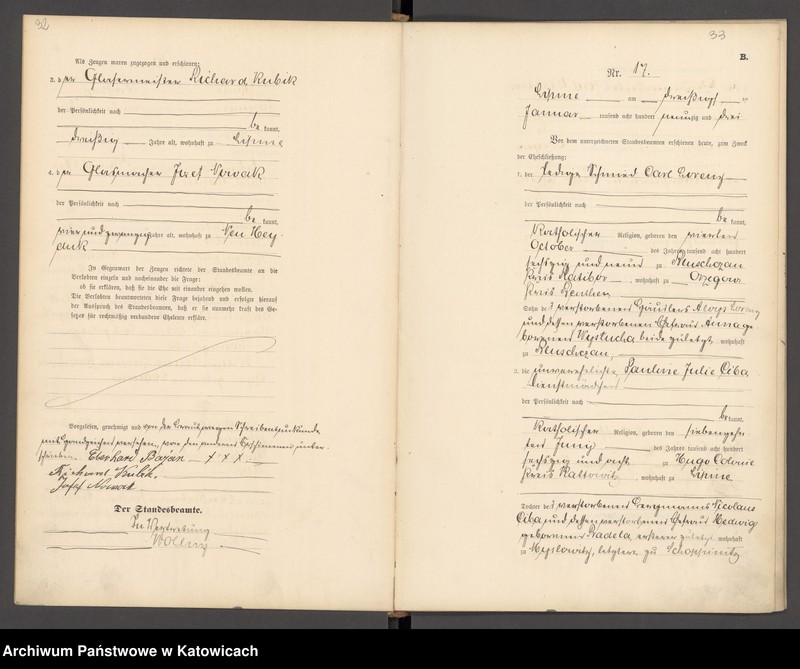 32
Als Zeugen waren zugezogen und erschienen:
3. der Glasermeister Richard Kubik
der Persönlichkeit nach
be kannt,
dreißig Jahre alt, wohnhaft zu Lipine
4. der Glasmacher Jozef Nowak
der Persönlichkeit nach
be kannt,
vier und zwanzig Jahre alt, wohnhaft zu Neu Hey-
duk
In Gegenwart der Zeugen richtete der Standesbeamte an die
Verlobten einzeln und nacheinander die Frage:
ob sie erklären, daß sie die Ehe mit einander eingehen wollen.
Die Verlobten beantworteten diese Frage bejahend und erfolgte hierauf
der Ausspruch des Standesbeamten, daß er sie nunmehr kraft des Ge-
setzes für rechtmäßig verbundene Eheleute erkläre.
Vorgelesen, genehmigt und von der wegen Schreibensunkunde
mit Handzeichen versehen, von den anderen Erschienenen unter-
schrieben. Eberhard Baján + + +
Richard Kubik.
Josef Nowak
Der Standesbeamte.
In Vertretung
Wolling
33
B.
Nr. 17.
Lipine am dreißigsten
Januar tausend acht hundert neunzig und drei
Vor dem unterzeichneten Standesbeamten erschienen heute, zum Zweck
der Eheschließung:
1. der ledige Schmied Carl Lorenz
der Persönlichkeit nach
be kannt,
Katholischer Religion, geboren den vierten
October des Jahres tausend acht hundert
sechszig und neun zu Kreis Ratibor, wohnhaft zu Orzegow
Kreis Beuthen
Sohn des verstorbenen Häuslers Aloys Lorenz
und dessen verstorbenen Ehefrau Anna ge-
borenen beide zuletzt wohnhaft
zu
2. die unverehelichte Pauline Julie Ciba
Dienstmädchen
der Persönlichkeit nach
be kannt,
Katholischer Religion, geboren den siebenzehn-
ten Juny des Jahres tausend acht hundert
sechszig und acht zu Hugo Colonie
Kreis Kattowitz, wohnhaft zu Lipine
Tochter des verstorbenen Bergmanns Nicolaus
Ciba und dessen verstorbenen Ehefrau Hedwig
geborenen Badela, ersterer zuletzt wohnhaft
zu Myslowitz, letztere zu Schoppinitz
Archiwum Państwowe w Katowicach